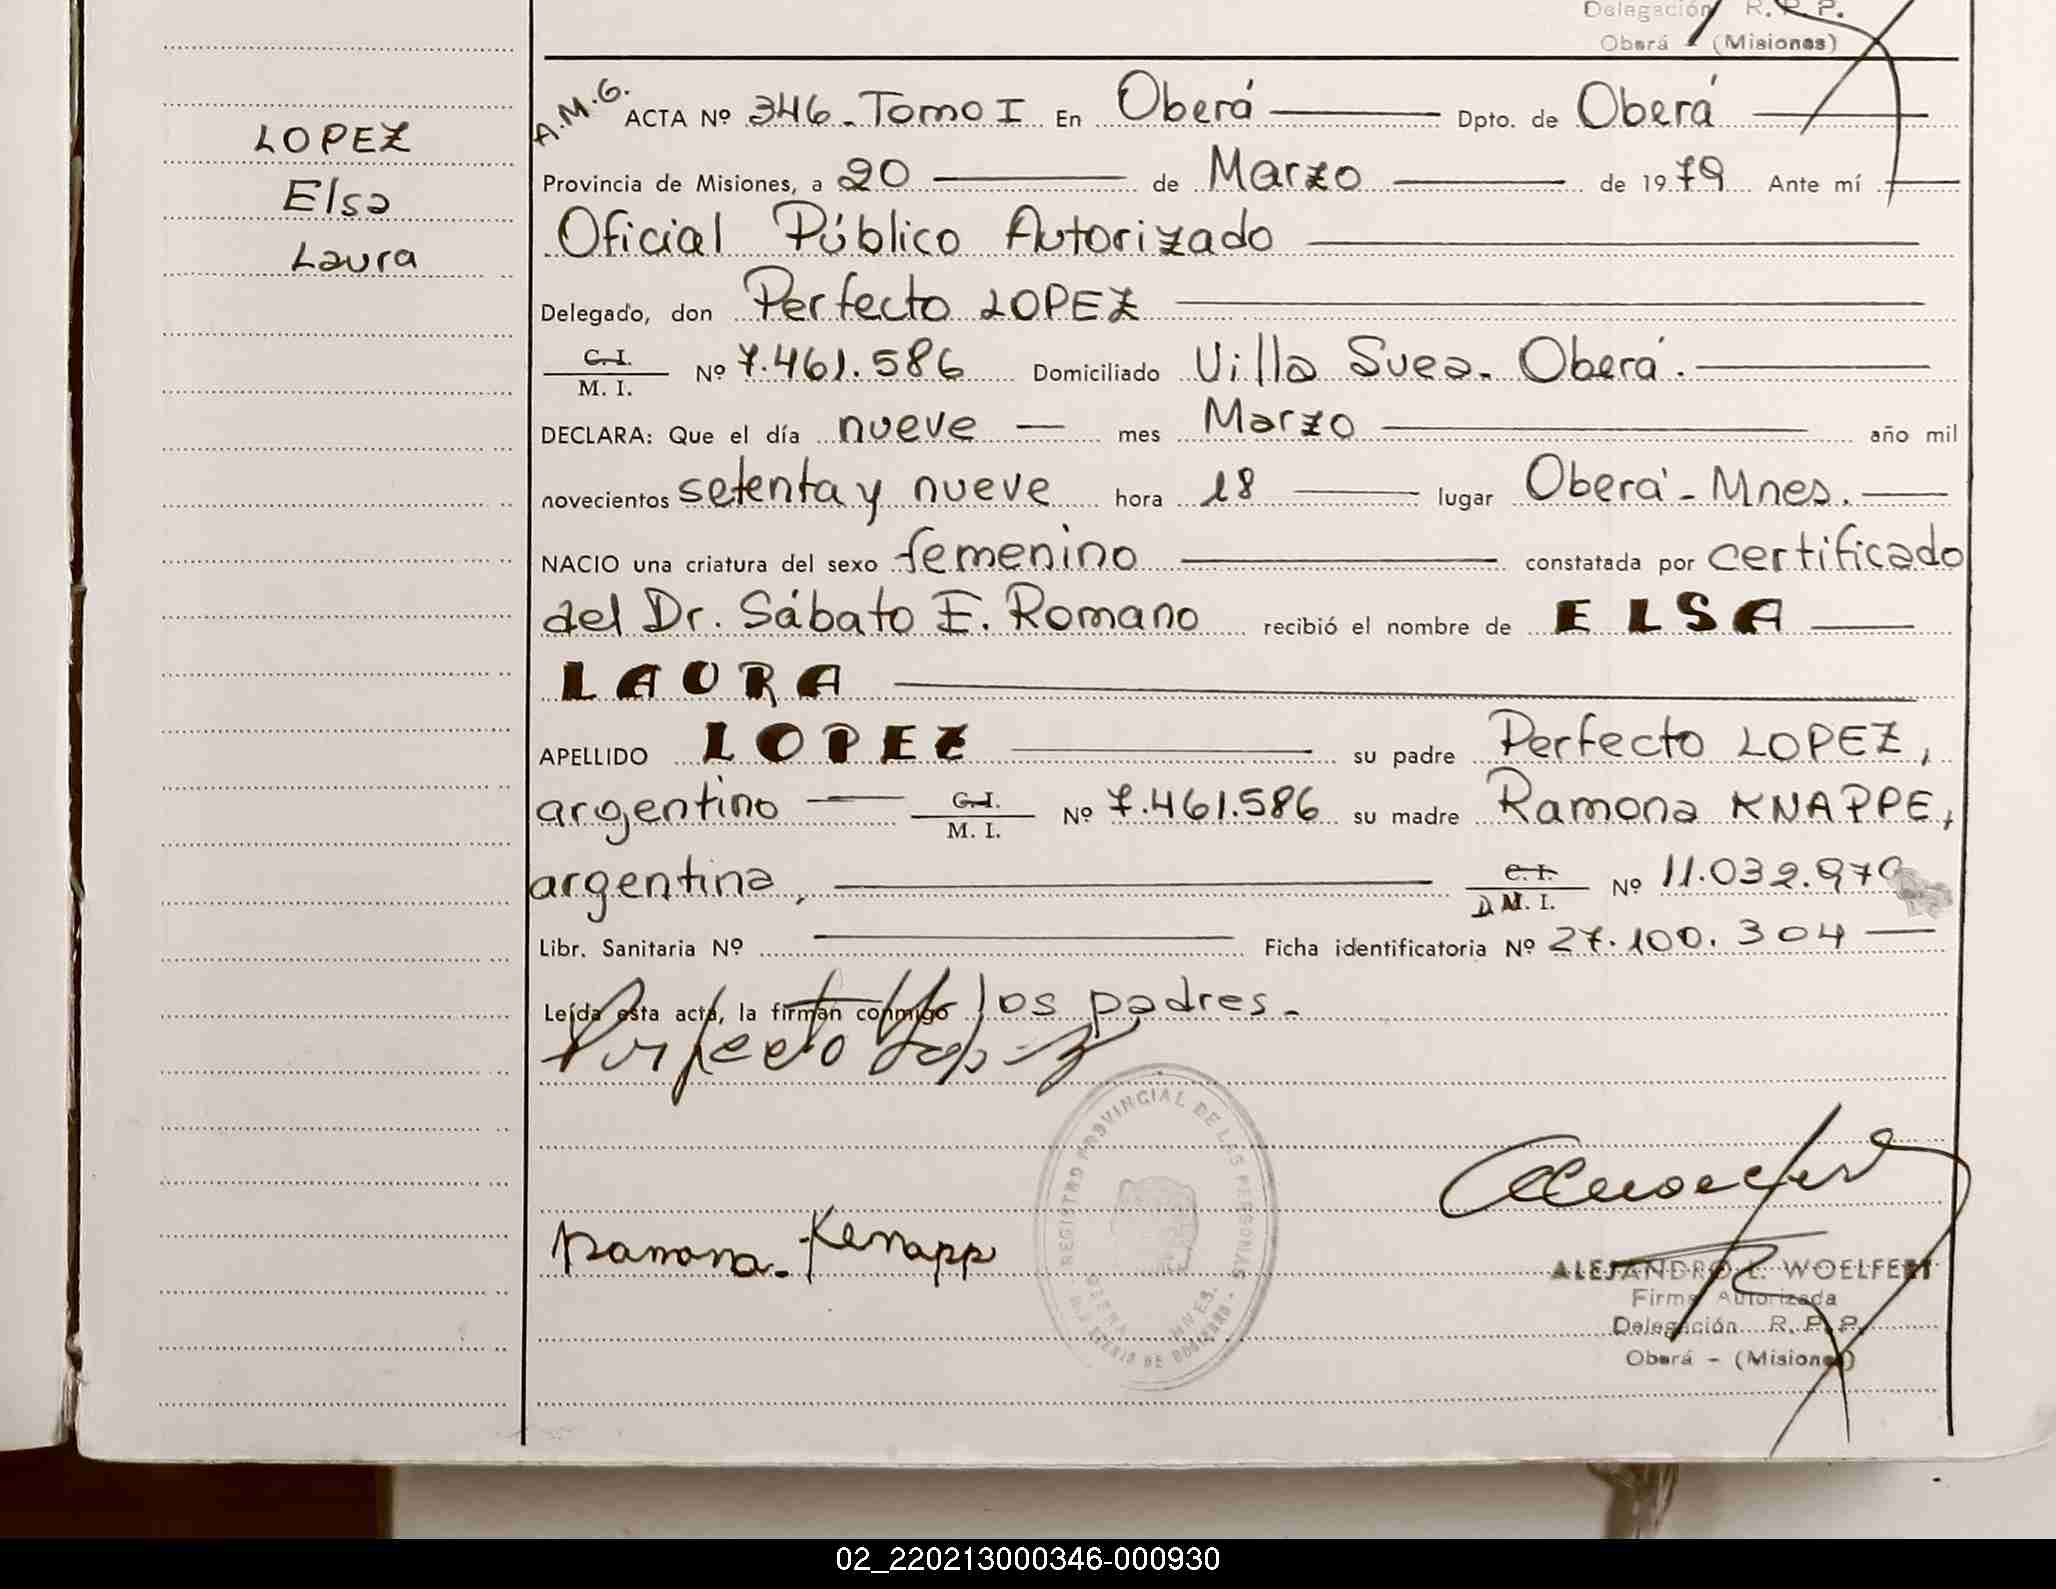 Delegación R. P. P.
Oberá (Misiones)
LOPEZ
Elsa
Laura
A.M.G. ACTA Nº 346. Tomo I En Oberá Dpto. de Oberá
Provincia de Misiones, a 20 de Marzo de 1979 Ante mí
Oficial Público Autorizado
Delegado, don Perfecto LOPEZ
C. I.
M. I. Nº 7.461.586 Domiciliado Villa Svea. Oberá.
DECLARA: Que el día nueve mes Marzo año mil
novecientos setenta y nueve hora 18 lugar Oberá - Mnes.
NACIO una criatura del sexo femenino constatada por certificado
del Dr. Sábato E. Romano recibió el nombre de ELSA
LAURA
APELLIDO LOPEZ su padre Perfecto LOPEZ,
argentino C. I. M. I. Nº 7.461.586 su madre Ramona KNAPPE,
argentina, C. I. D M. I. Nº 11.032.970
Libr. Sanitaria Nº Ficha identificatoria Nº 27.100.304
Leída esta acta, la firman conmigo los padres.
Perfecto Lopez
REGISTRO PROVINCIAL DE LAS PERSONAS
OBERA MNES.
MINISTERIO DE GOBIERNO
Ramona. Kenapp
ALEJANDRO L. WOELFERT
Firma Autorizada
Delegación R. P. P.
Oberá - (Misiones)
02_220213000346-000930